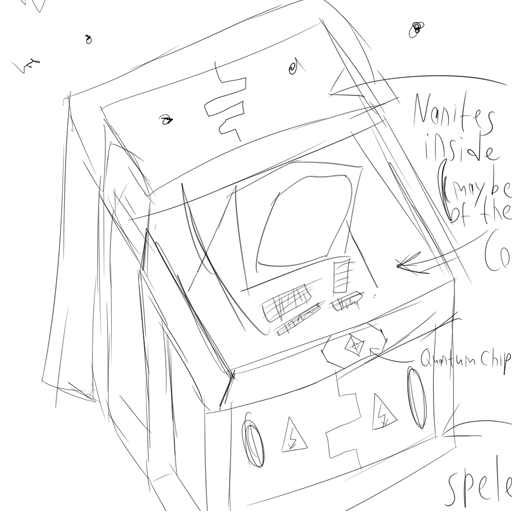 Nanites
inside
(maybe
of the
Co
Quantum Chip
spele